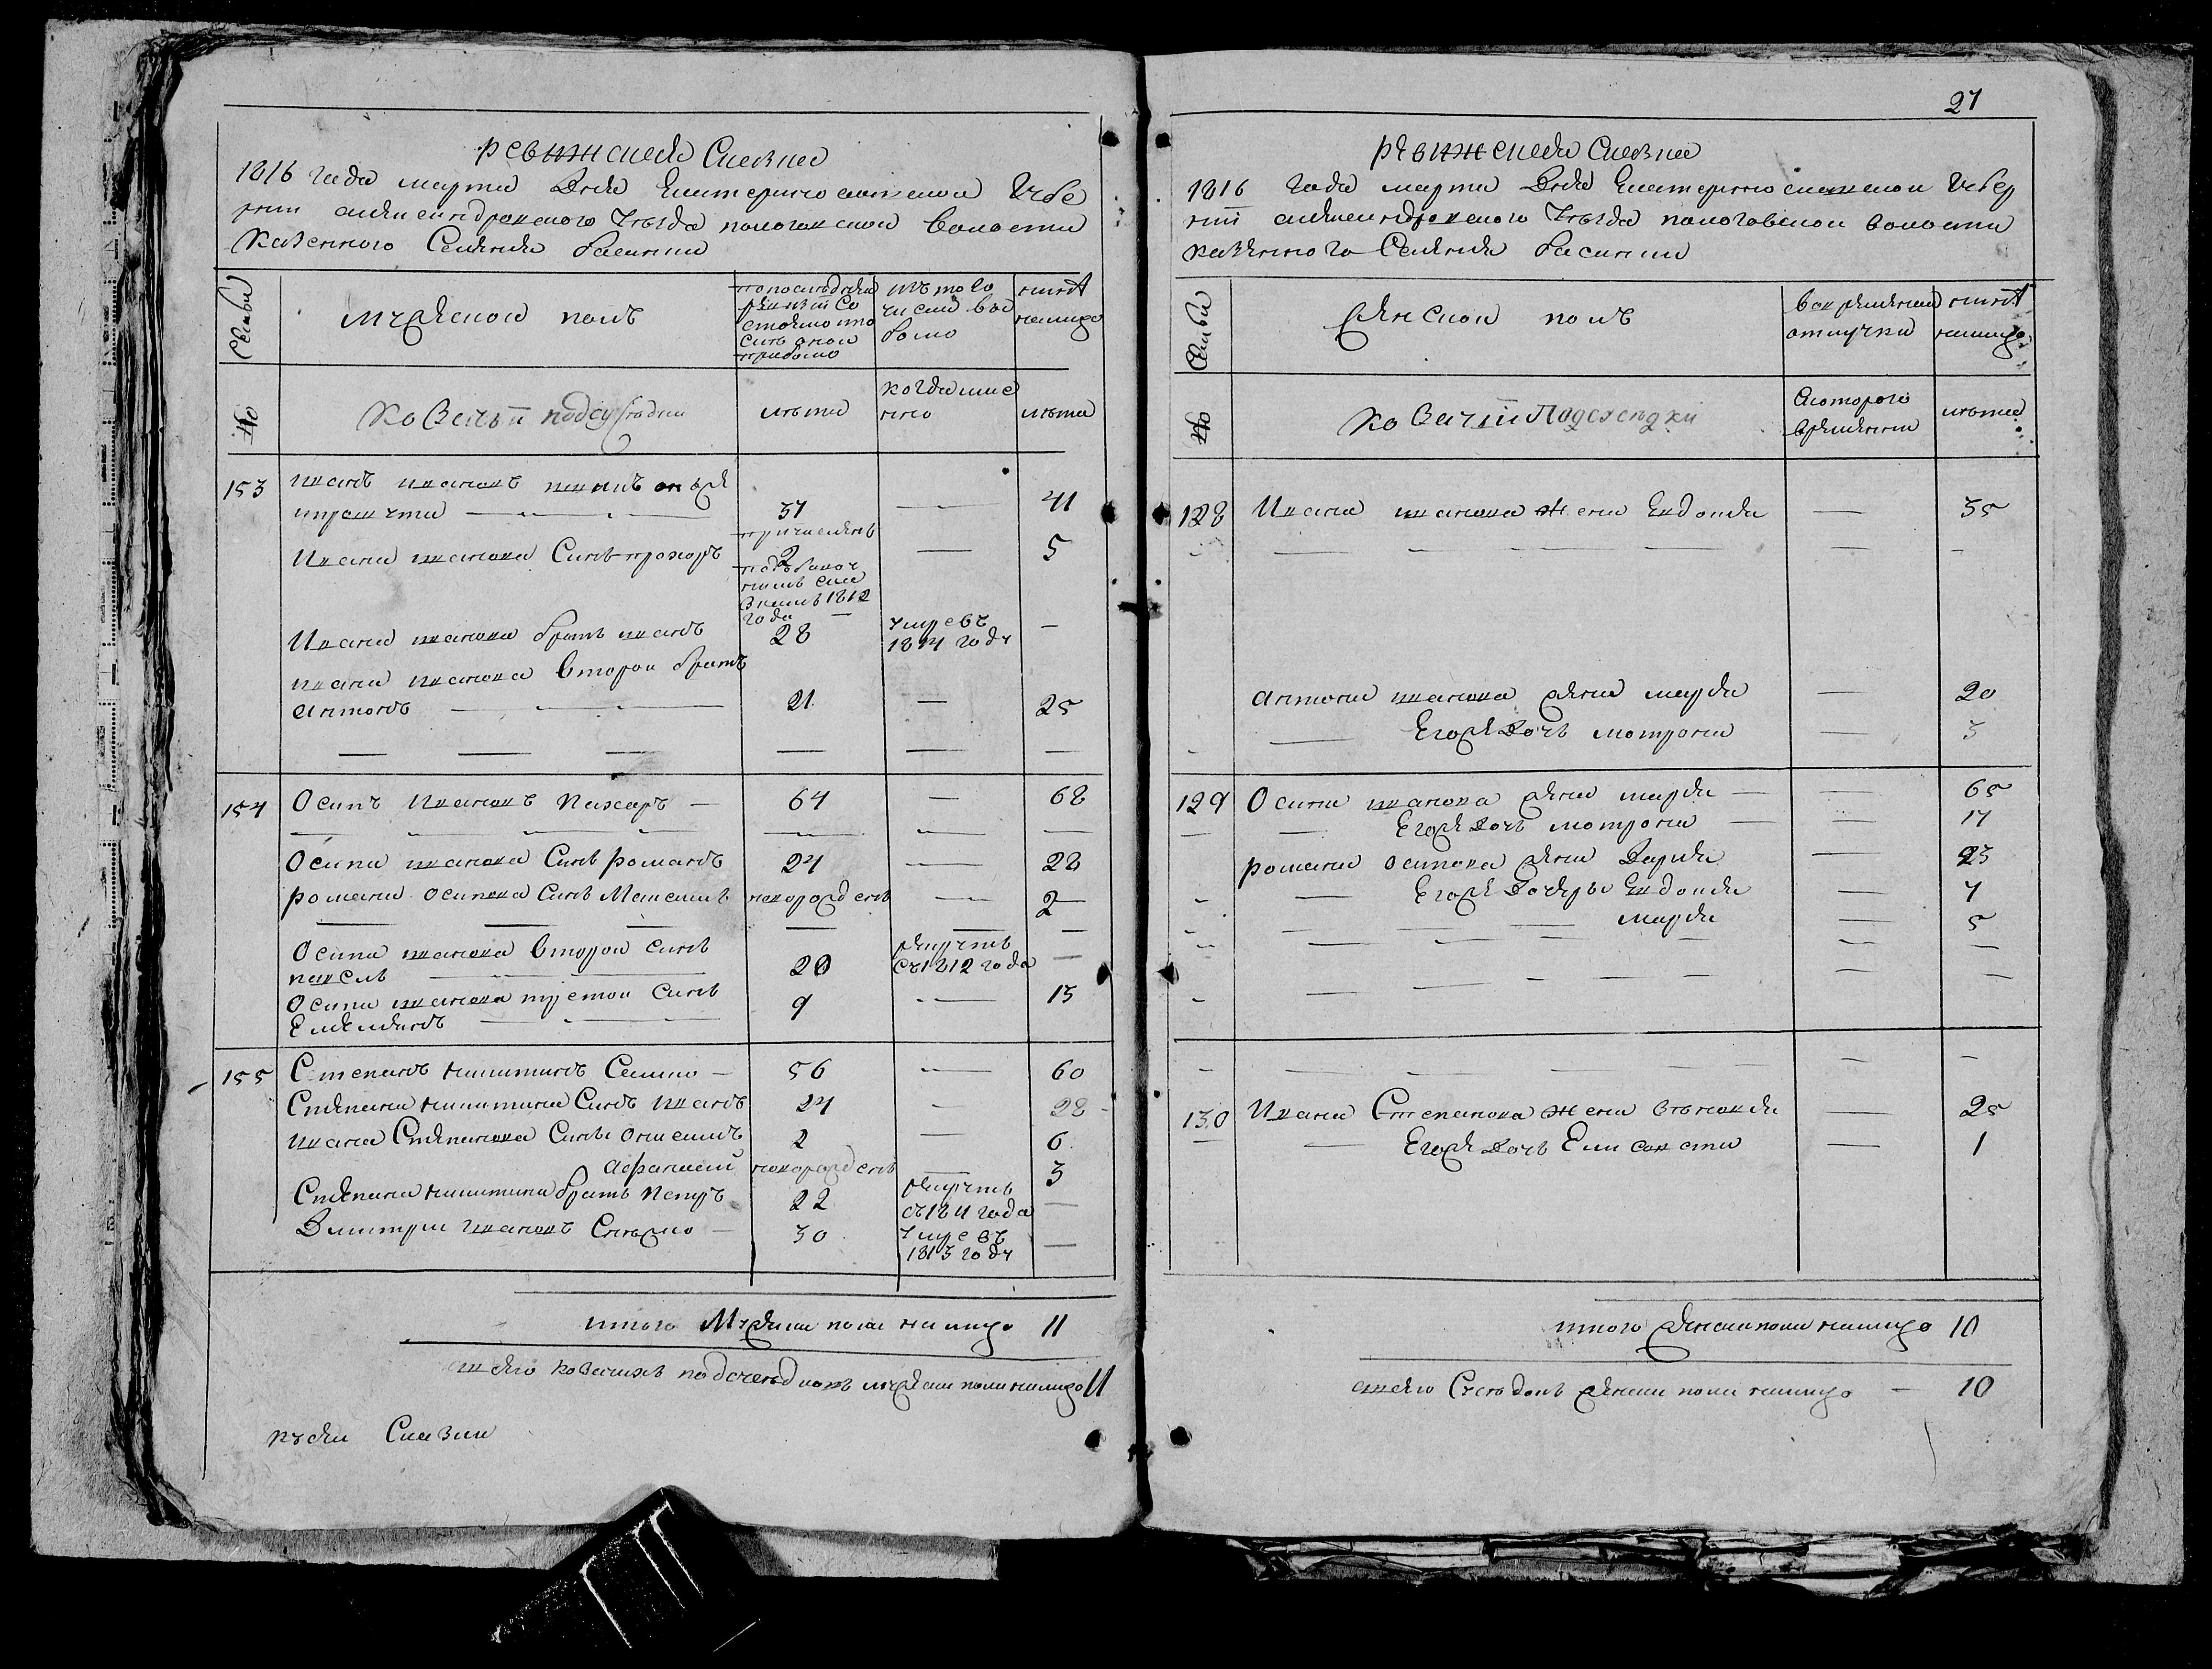 ревижская Сказка
1816 года марта дня Екатеринославской Губе
рнии александровского Уезда пологовской Волости
Казенного Селения басани
Семьи
мужеской полъ
попоследней ревизии Состояло ипосле оной прибыло
изъ того числа выбыло
ныне налицо
№
Козачьи подсуседки
лета
когда имено
лета
153
иванъ ивановъ
37
41
причисленъ
Ивана иванова Синъ прохоръ
2
5
1812 года
Ивана иванова братъ иванъ
28
умре въ 1814 году
ивана иванова второй братъ
антонъ
21
25
154
Осипъ Ивановъ Пахаръ
64
68
Осипа иванова Синъ романъ
24
28
романа осипова Синъ Максимъ
новорожденъ
2
Осипа иванова второй синъ
павелъ
20
рекрутъ съ 1812 года
Осипа иванова третой Синъ
Емелянъ
9
13
155
Степанъ никитинъ
56
60
Степана никитина Синъ иванъ
24
28
ивана Степанова Сини онисимъ
2
6
афанасий
новорожденъ
3
Степана никитина братъ петръ
22
рекрутъ съ 1811 года
Дмитрии ивановъ
30
умре въ 1813 году
итого Мужеска пола на лицо 11
всего козачихъ подсуседковъ мужеска пола налицо 11
Сказки
27
ревижская Сказка
1816 года марта дня Екатеринославской Губер
нии александровского Уезда пологовской волости
казенного Селения басани
Семьи
женской полъ
вовременной отлучки
ныне налицо
№
Козачьи Подсуседки
Скоторого времени
лета
128
Ивана иванова жена Евдокия
35
антона иванова жена марья
20
Егоже дочь мотрона
3
129
Осипа иванова жена марья
65
Егоже дочь мотрона
17
романа осипова жена Дарья
23
Егоже дочери Евдокия
7
марья
5
130
Ивана Степанова жена
25
Егоже дочь Елисавета
1
итого женска пола налицо 10
всего женска пола налицо 10